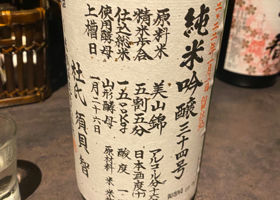 純米吟醸三十四号
原料米 美山錦 アルコール分十六
精米歩合 五割五分 日本酒度
仕込総米 一五〇〇kg 酸度 一
使用酵母 山形酵母 原材料 米 米
上槽日 一月二十六日
杜氏 須貝智